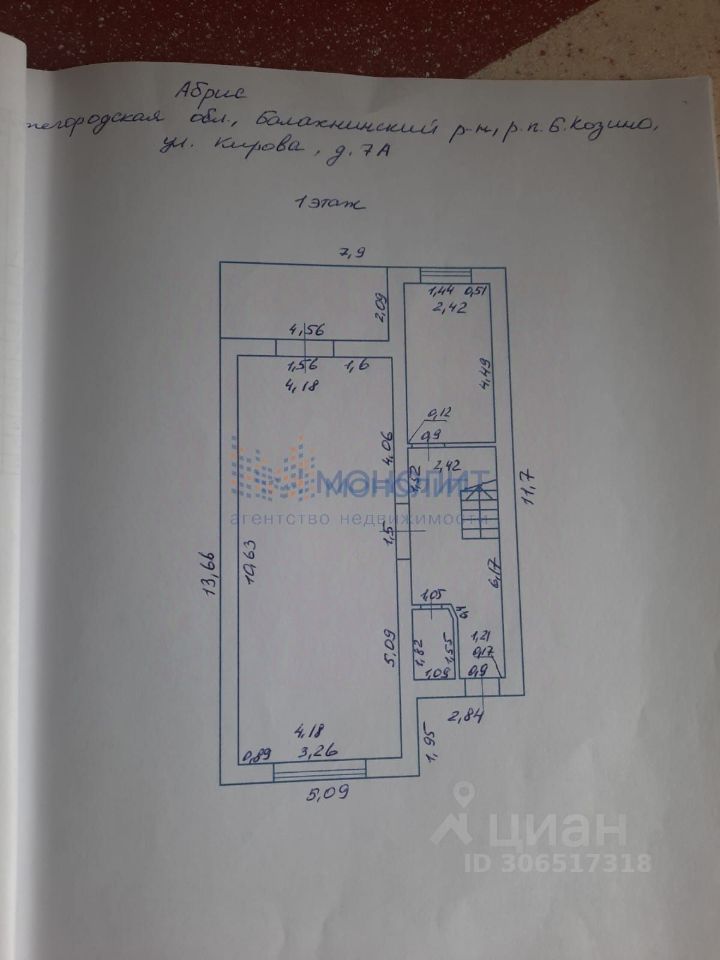 Абрис
жегородская обл., Балахнинский р-н, р.п. Б. Козино,
ул. Кирова, д. 7А
1 этаж
7,9
1,44 0,51
2,42
2,09
4,56
1,56 1,6
4,18
4,49
4,06
0,12
0,9
2,42
1,52
МОНОЛИТ
агентство недвижимости
11,7
1,5
13,66
10,63
6,17
1,05
0,4
5,09
1,82
1,55
1,21
0,17
1,09
0,9
2,84
4,18
0,89 3,26
1,95
5,09
циан
ID 306517318